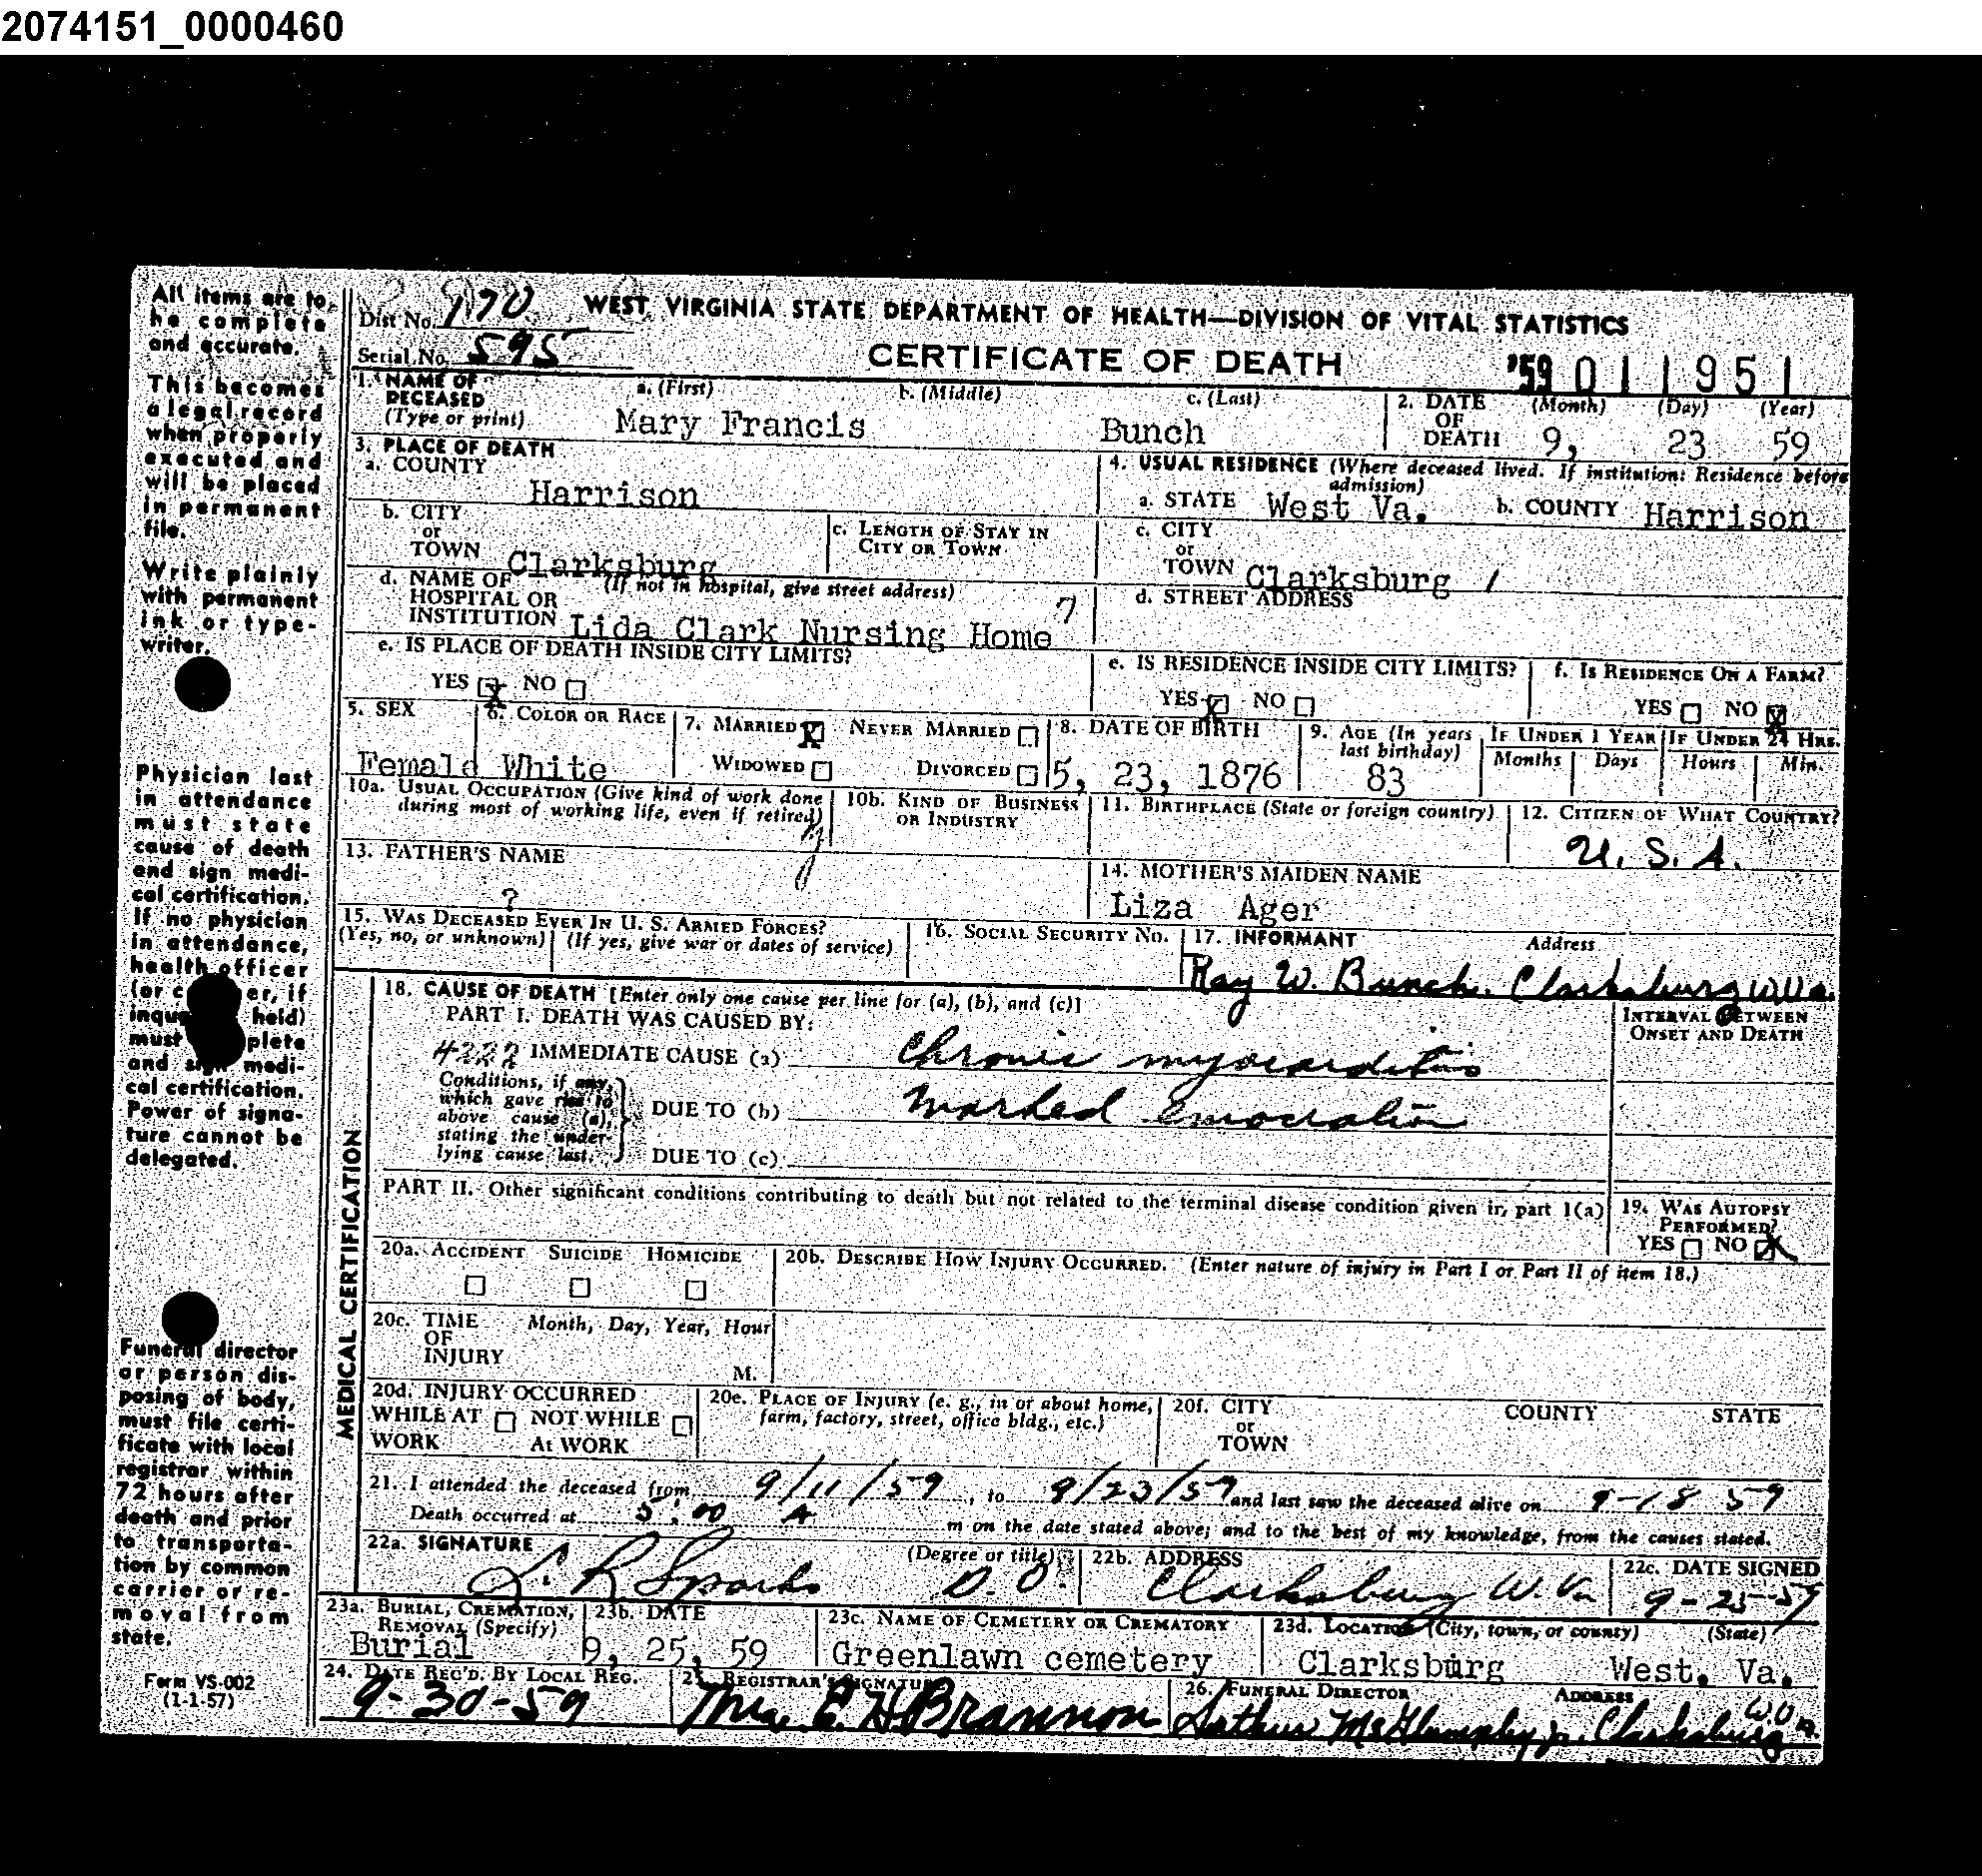 2074151_0000460
All items are to be complete and accurate.
This becomes a legal record when properly executed and will be placed in permanent file.
Write plainly with permanent ink or typewriter.
Physician last in attendance must state cause of death and sign medical certification. If no physician in attendance, health officer (or c er, if inqu held) must plete and sign medical certification. Power of signature cannot be delegated.
Funeral director or person disposing of body, must file certificate with local registrar within 72 hours after death and prior to transportation by common carrier or removal from state.
Form VS-002
(1-1-57)
Dist No. 170 WEST VIRGINIA STATE DEPARTMENT OF HEALTH—DIVISION OF VITAL STATISTICS
Serial No. 595 CERTIFICATE OF DEATH '59 011951
1. NAME OF DECEASED (Type or print) a. (First) b. (Middle) c. (Last) 2. DATE OF DEATH (Month) (Day) (Year)
Mary Francis Bunch 9, 23 59
3. PLACE OF DEATH
a. COUNTY Harrison
4. USUAL RESIDENCE (Where deceased lived. If institution: Residence before admission)
a. STATE West Va. b. COUNTY Harrison
b. CITY or TOWN Clarksburg c. LENGTH OF STAY IN CITY OR TOWN
c. CITY or TOWN Clarksburg 1
d. NAME OF HOSPITAL OR INSTITUTION (If not in hospital, give street address) Lida Clark Nursing Home 7
d. STREET ADDRESS
e. IS PLACE OF DEATH INSIDE CITY LIMITS?
YES X NO
e. IS RESIDENCE INSIDE CITY LIMITS? f. IS RESIDENCE ON A FARM?
YES X NO YES NO X
5. SEX Female 6. COLOR OR RACE White 7. MARRIED X NEVER MARRIED WIDOWED DIVORCED
8. DATE OF BIRTH 5, 23, 1876 9. AGE (In years last birthday) 83 IF UNDER 1 YEAR Months Days IF UNDER 24 HRS. Hours Min.
10a. USUAL OCCUPATION (Give kind of work done during most of working life, even if retired) 10b. KIND OF BUSINESS OR INDUSTRY 11. BIRTHPLACE (State or foreign country) 12. CITIZEN OF WHAT COUNTRY?
U. S. A.
13. FATHER'S NAME ?
14. MOTHER'S MAIDEN NAME Liza Ager
15. WAS DECEASED EVER IN U. S. ARMED FORCES?
(Yes, no, or unknown) (If yes, give war or dates of service)
16. SOCIAL SECURITY NO. 17. INFORMANT Address
Ray W. Bunch. Clarksburg W Va.
MEDICAL CERTIFICATION
18. CAUSE OF DEATH [Enter only one cause per line for (a), (b), and (c)]
PART I. DEATH WAS CAUSED BY:
INTERVAL BETWEEN ONSET AND DEATH
4222 IMMEDIATE CAUSE (a) Chronic myocarditis
Conditions, if any, which gave rise to above cause (a), stating the underlying cause last.
DUE TO (b) Marked
DUE TO (c)
PART II. Other significant conditions contributing to death but not related to the terminal disease condition given in part 1(a)
19. WAS AUTOPSY PERFORMED?
YES NO X
20a. ACCIDENT SUICIDE HOMICIDE 20b. DESCRIBE HOW INJURY OCCURRED. (Enter nature of injury in Part I or Part II of item 18.)
20c. TIME OF INJURY Month, Day, Year, Hour M.
20d. INJURY OCCURRED
WHILE AT WORK NOT WHILE At WORK
20e. PLACE OF INJURY (e. g., in or about home, farm, factory, street, office bldg., etc.)
20f. CITY or TOWN COUNTY STATE
21. I attended the deceased from 9/11/59, to 9/23/59 and last saw the deceased alive on 9-18 59
Death occurred at 5:00 A m on the date stated above; and to the best of my knowledge, from the causes stated.
22a. SIGNATURE (Degree or title) 22b. ADDRESS 22c. DATE SIGNED
R Sparks D. O. Clarksburg W. Va 9-25-59
23a. BURIAL, CREMATION, REMOVAL (Specify) 23b. DATE 23c. NAME OF CEMETERY OR CREMATORY 23d. LOCATION (City, town, or county) (State)
Burial 9, 25, 59 Greenlawn cemetery Clarksburg West. Va.
24. DATE REC'D. BY LOCAL REG. 25. REGISTRAR'S SIGNATURE 26. FUNERAL DIRECTOR ADDRESS
9-30-59 Mrs. E. H Brannon Arthur Clarksburg